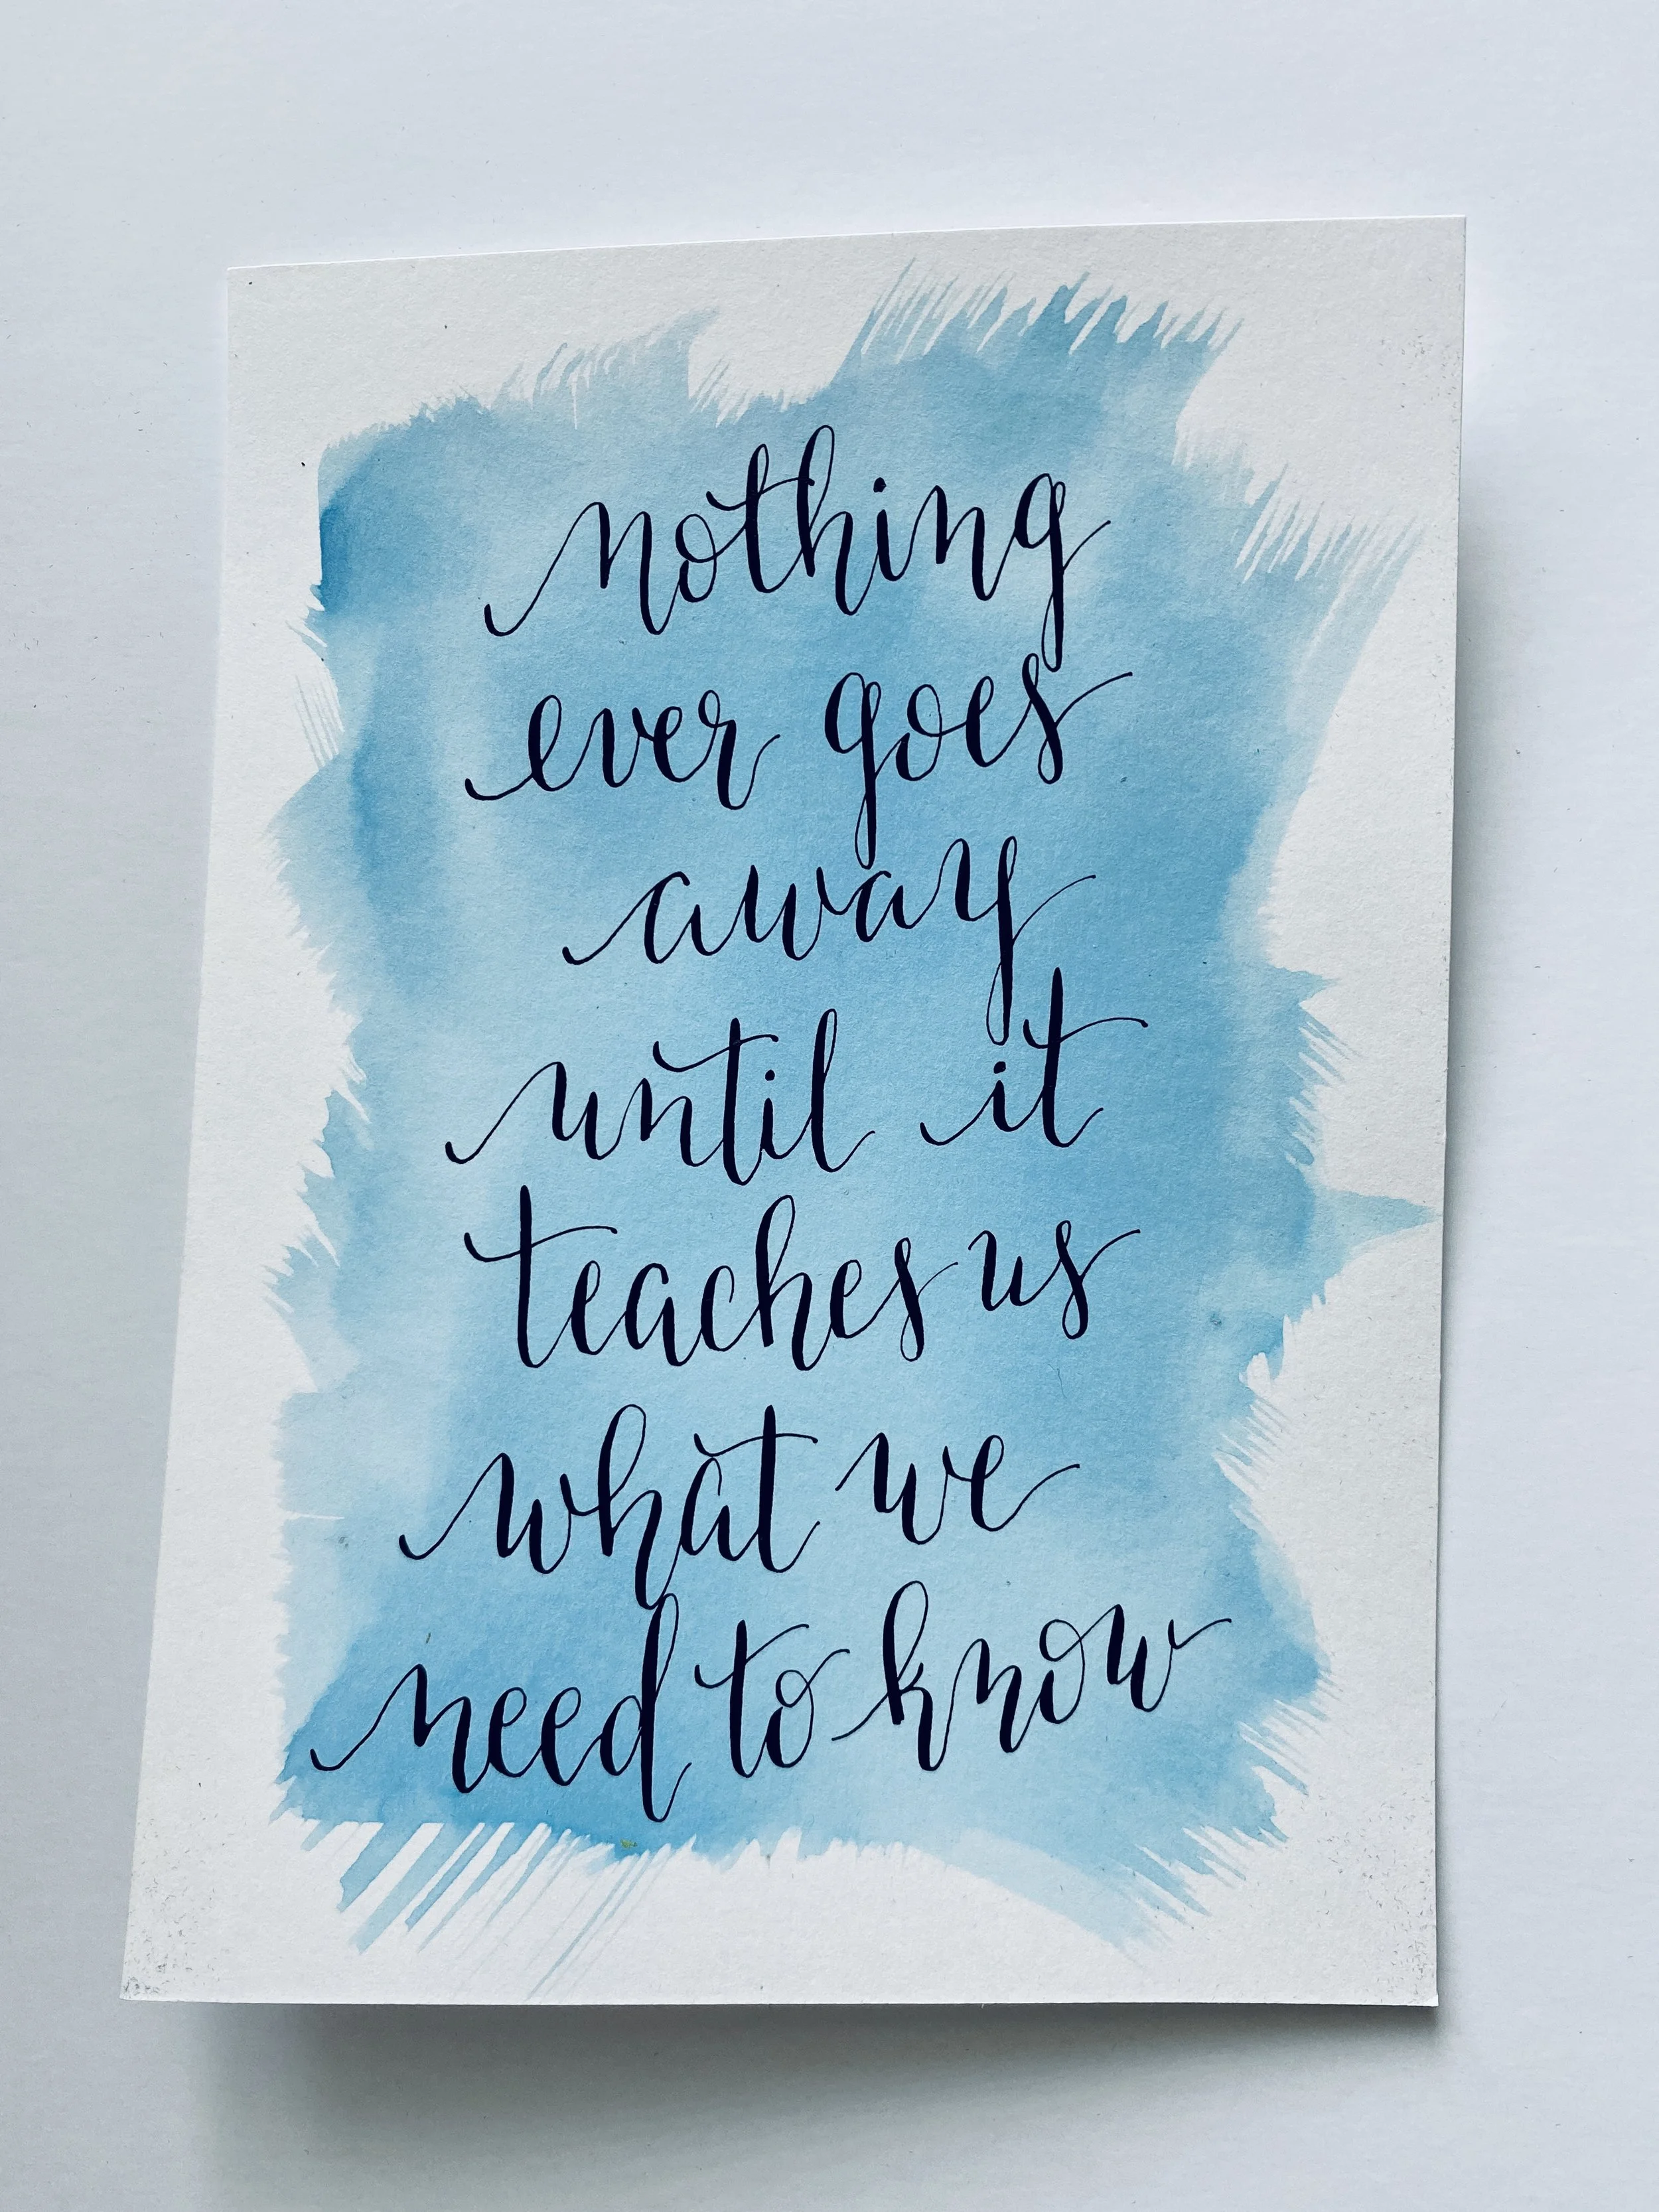 nothing
ever goes
away
until it
teaches us
what we
need to know